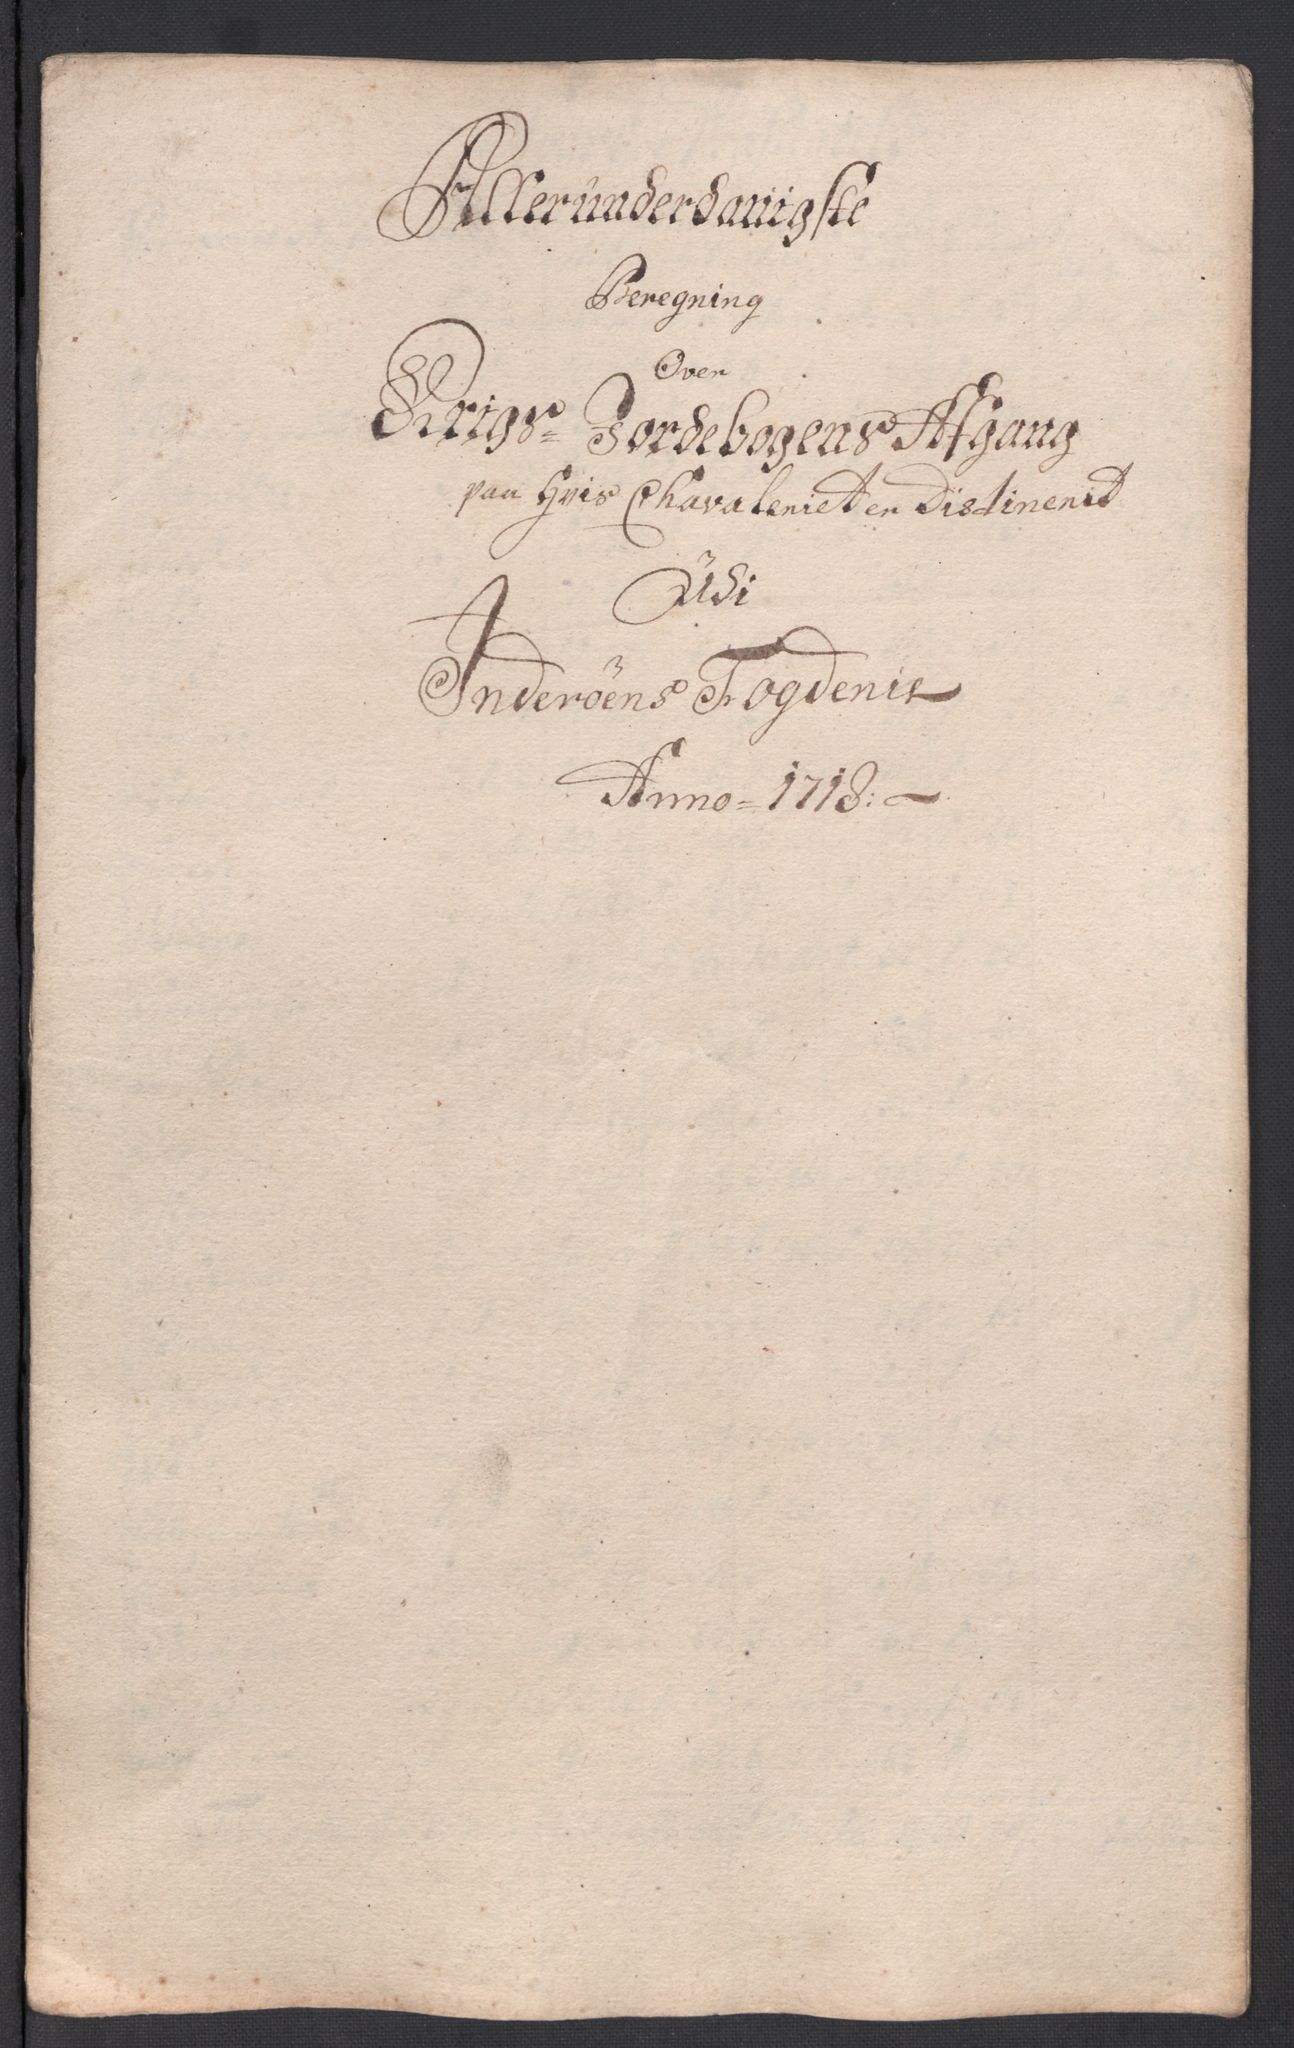 Alleründerdanigste
Beregning
Over
Krigs= Jordebogens Afgang
paa hvis Chavaleriet er Distinerit
Üdi
Inderöens Fogderie
Anno = 1718: